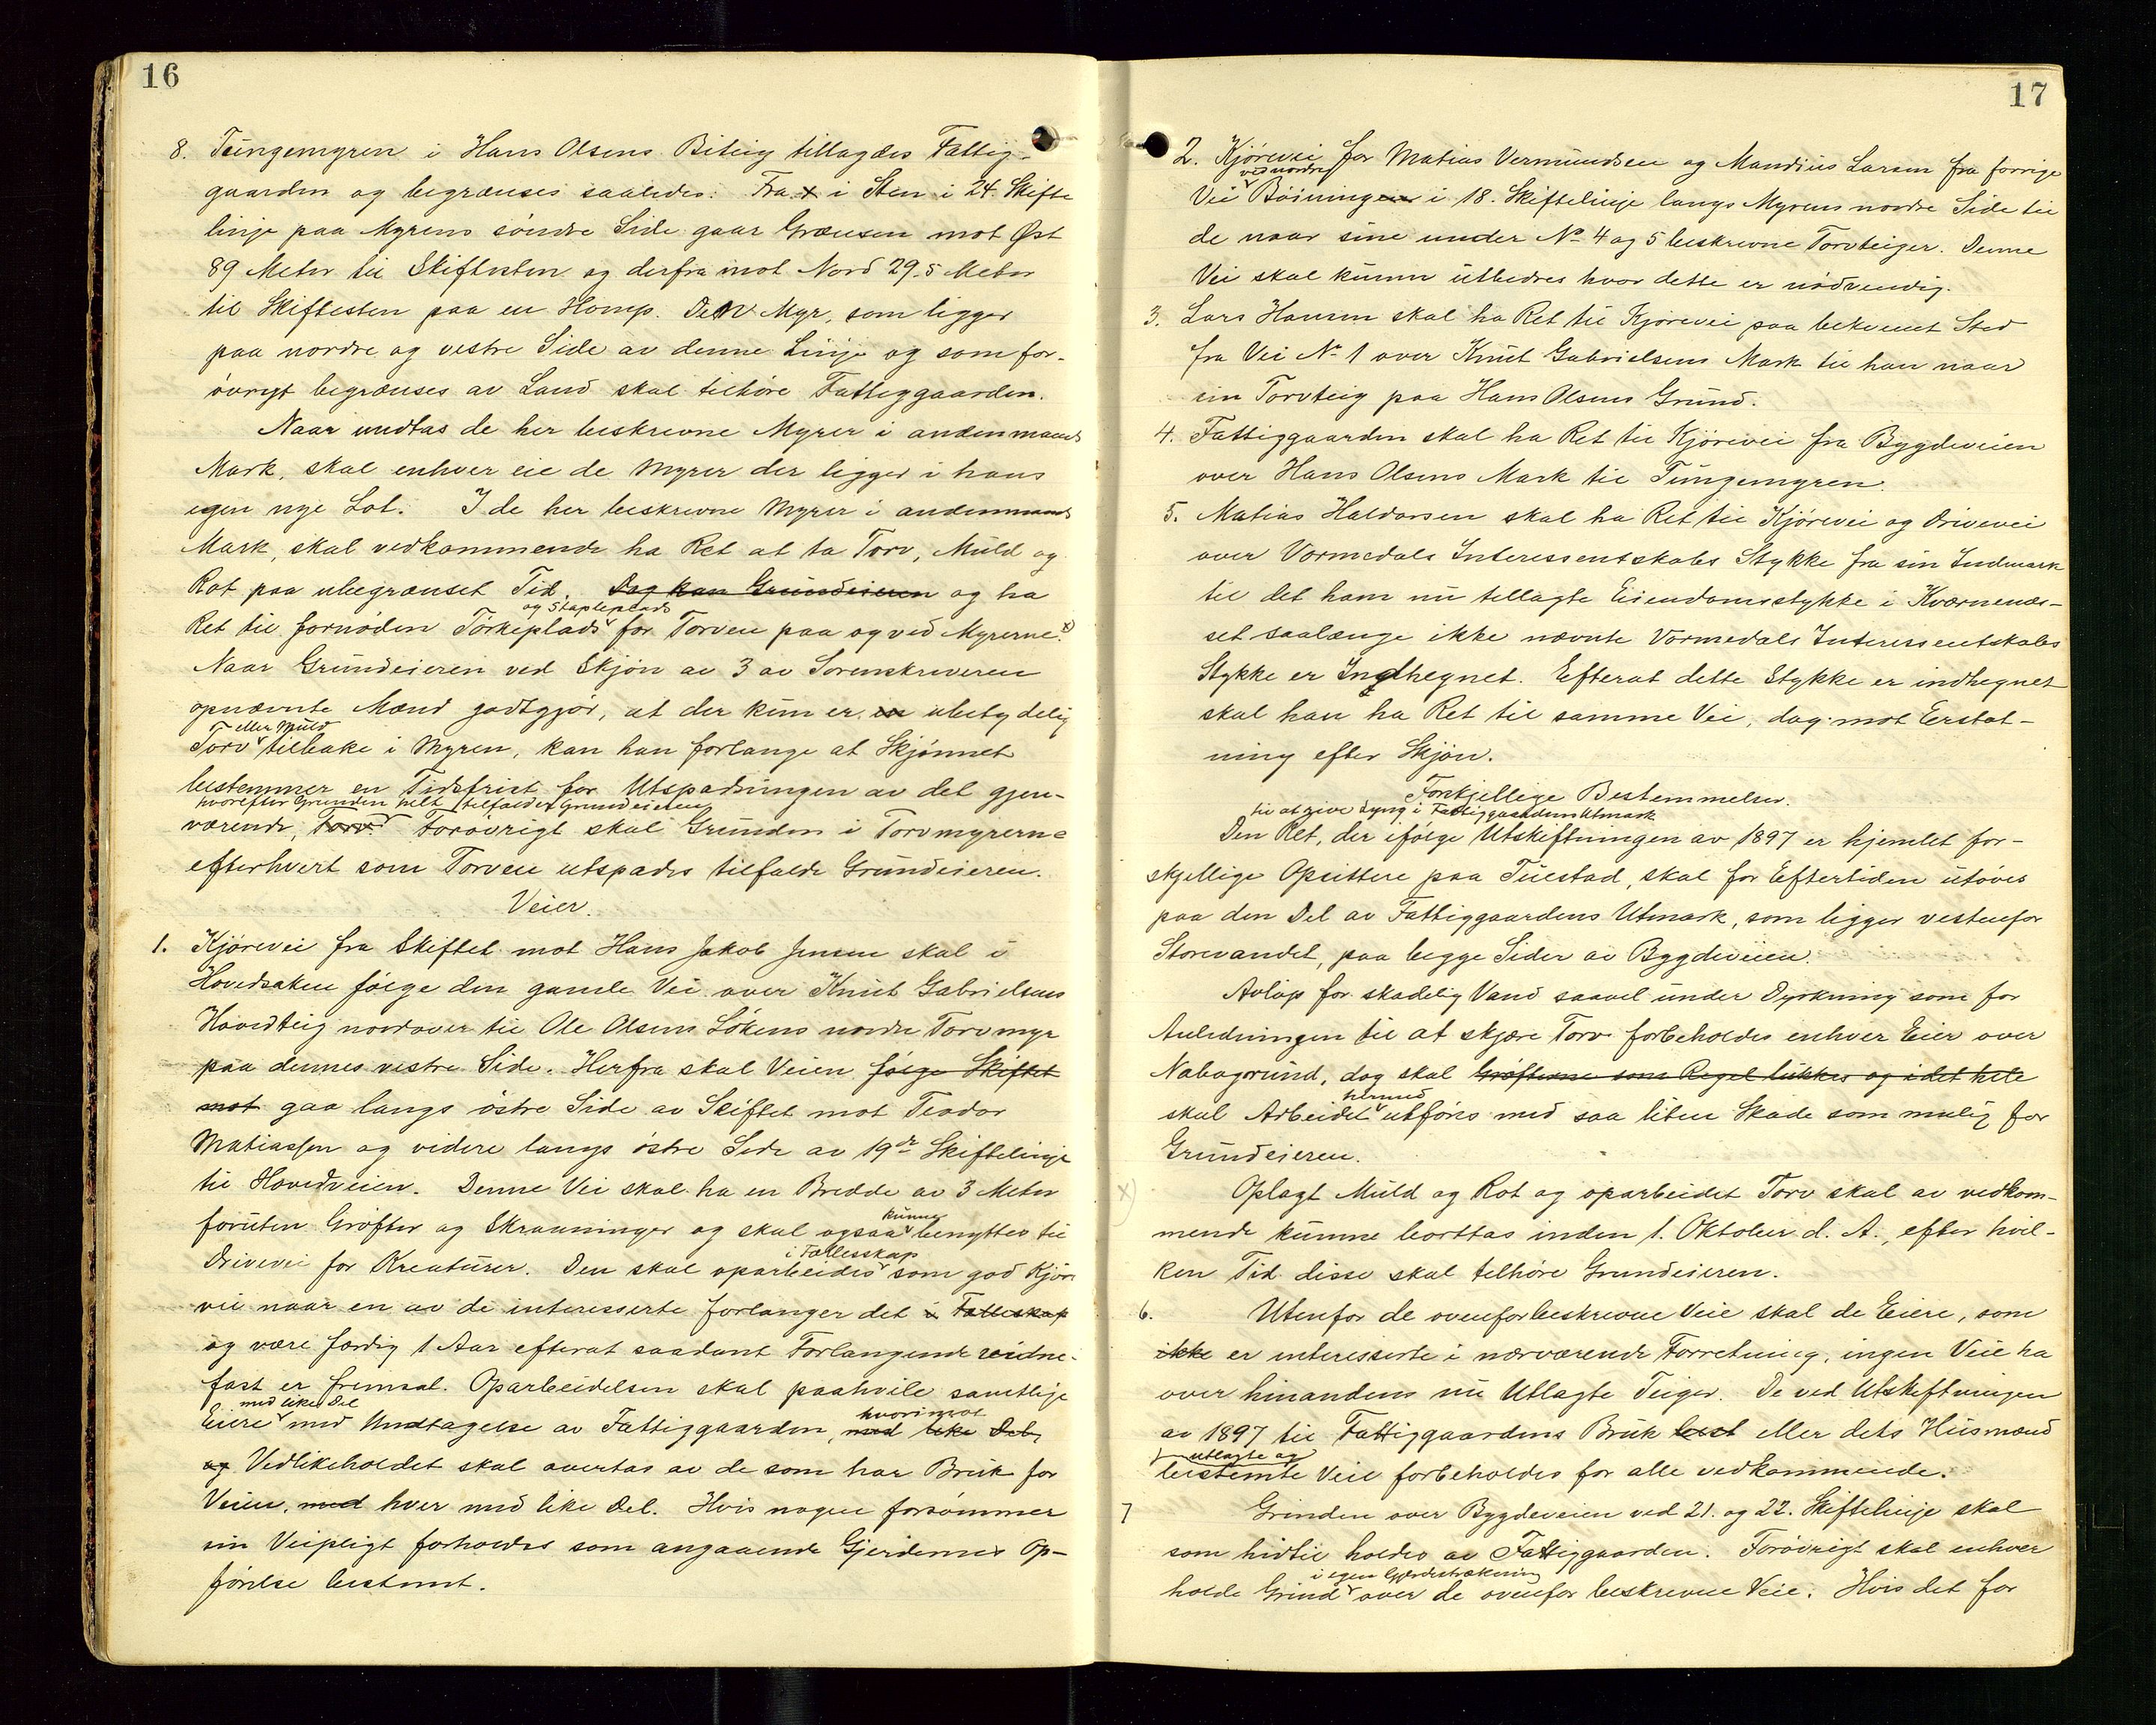 16
8. Tungemyren i Hans Olsens Biteig tillagdes Fattig-
gaarden og begrænses saaledes: Fra x i Sten i 24. Skifte
linje paa Myrens söndre Side gaar Grænsen mot Øst
89 Meter til Skiftesten og derfra mot Nord 29.5 Meter
til Skiftesten paa en Homp. Den Myr, som ligger
paa nordre og vestre Side av denne Linje og som for-
övrigt begrænses av Land skal tilhöre Fattiggaarden.
Naar undtas de her beskrevne Myrer i andenmands
Mark, skal enhver eie de Myrer der ligger i hans
egen nye Lot. I de her beskrevne Myrer i andenmands
Mark, skal vedkommende ha Ret at ta Torv, Muld og
Rot paa ubegrænset Tid. Dog kan Grundeieren og ha
og Stapleplads
Ret til fornöden Törkeplads for Torven paa og ved Myrerne. x)
Naar Grundeieren ved Skjön av 3 av Sorenskriveren
opnævnte Mænd godtgjör, at der kun er en ubetydelig
eller Muld
Torv tilbake i Myren, kan han forlange at Skjönnet
bestemmer en Tidsfrist for Utspadningen av det gjen-
hvorefter Grunden helt tilfalder Grundeieren
værende, Torv. Forövrigt skal Grunden i Torvmyrerne
efterhvert som Torven utspades tilfalde Grundeieren.
Veier.
1. Kjörevei fra Skiftet mot Hans Jakob Jensen skal i
Hovedsaken fölge den gamle Vei over Knut Gabrielsens
Hovedteig nordover til Ole Olsens Lökens nordre Torvmyr
paa dennes vestre Side. Herfra skal Veien fölge Skiftet
mot gaa langs östre Side av Skiftet mot Teodor
Matiassen og videre langs östre Side av 19de Skiftelinje
til Hovedveien. Denne Vei skal ha en Bredde av 3 Meter
kunne
foruten Gröfter og Skraaninger og skal ogsaa benyttes til
i Fællesskap
Drivevei for Kreaturer. Den skal oparbeides som god Kjöre
vei naar en av de interesserte forlanger det i Fælleskap
og være færdig 1 Aar efterat saadant Forlangende vidne-
fast er fremsat. Oparbeidelsen skal paahvile samtlige
med like Del hvorimot
Eiere med Undtagelse av Fattiggaarden, med like Del,
og Vedlikeholdet skal overtas av de som har Bruk for
Veien, med hver med like Del. Hvis nogen forsömmer
sin Veipligt forholdes som angaaende Gjerdernes Op-
förelse bestemt.
17
2. Kjörevei for Matias Vermundsen og Mandius Larsen fra forrige
ved nordre
Vei Böiningen i 18. Skiftelinje langs Myrens nordre Side til
de naar sine under No 4 og 5 beskrevne Torvteiger. Denne
Vei skal kunne utbedres hvor dette er nödvendig.
3. Lars Hansen skal ha Ret til Kjörevei paa bekvemt Sted
fra Vei No 1 over Knut Gabrielsens Mark til han naar
sin Torvteig paa Hans Olsens Grund.
4. Fattiggaarden skal ha Ret til Kjörevei fra Bygdeveien
over Hans Olsens Mark til Tungemyren.
5. Matias Haldorsen skal ha Ret til Kjörevei og Drivevei
over Vormedals Interessentskabs Stykke fra sin Indmark
til det ham nu tillagte Eiendomsstykke i Kværnenes-
set saalænge ikke nævnte Vormedals Interessentskabs
Stykke er Indhegnet. Efterat dette Stykke er indhegnet
skal han ha Ret til samme Vei, dog mot Erstat-
ning efter Skjön.
Forskjellige Bestemmelser.
til at rive Lyng i Fattiggaardens Utmark
Den Ret, der ifölge Utskiftningen av 1897 er hjemlet for-
skjellige Opsittere paa Tuestad, skal for Eftertiden utöves
paa den Del av Fattiggaardens Utmark, som ligger vestenfor
Storevandet, paa begge Sider av Bygdeveien.
Avlöp for skadelig Vand saavel under Dyrkning som for
Anledningen til at skjære Torv forbeholdes enhver Eier over
Nabogrund, dog skal Gröfterne som Regel lukkes og i det hele
herved
skal Arbeidet utföres med saa liten Skade som mulig for
Grundeieren.
x) Oplagt Muld og Rot og oparbeidet Torv skal av vedkom-
mende kunne borttas inden 1. Oktober d. A., efter hvil-
ken Tid disse skal tilhöre Grundeieren.
6. Utenfor de ovenforbeskrevne Veie skal de Eiere, som
ikke er interesserte i nærværende Forretning, ingen Veie ha
over hinandens nu Utlagte Teiger. De ved Utskiftningen
av 1897 til Fattiggaardens Bruk best eller dets Husmænd
utlagte og
bestemte Veie forbeholdes for alle vedkommende.
7 Grinden over Bygdeveien ved 21. og 22. Skiftelinje skal
som hidtil holdes av Fattiggaarden. Forövrigt skal enhver
i egen Gjerdestrækning
holde Grind over de ovenfor beskrevne Veie. Hvis det for